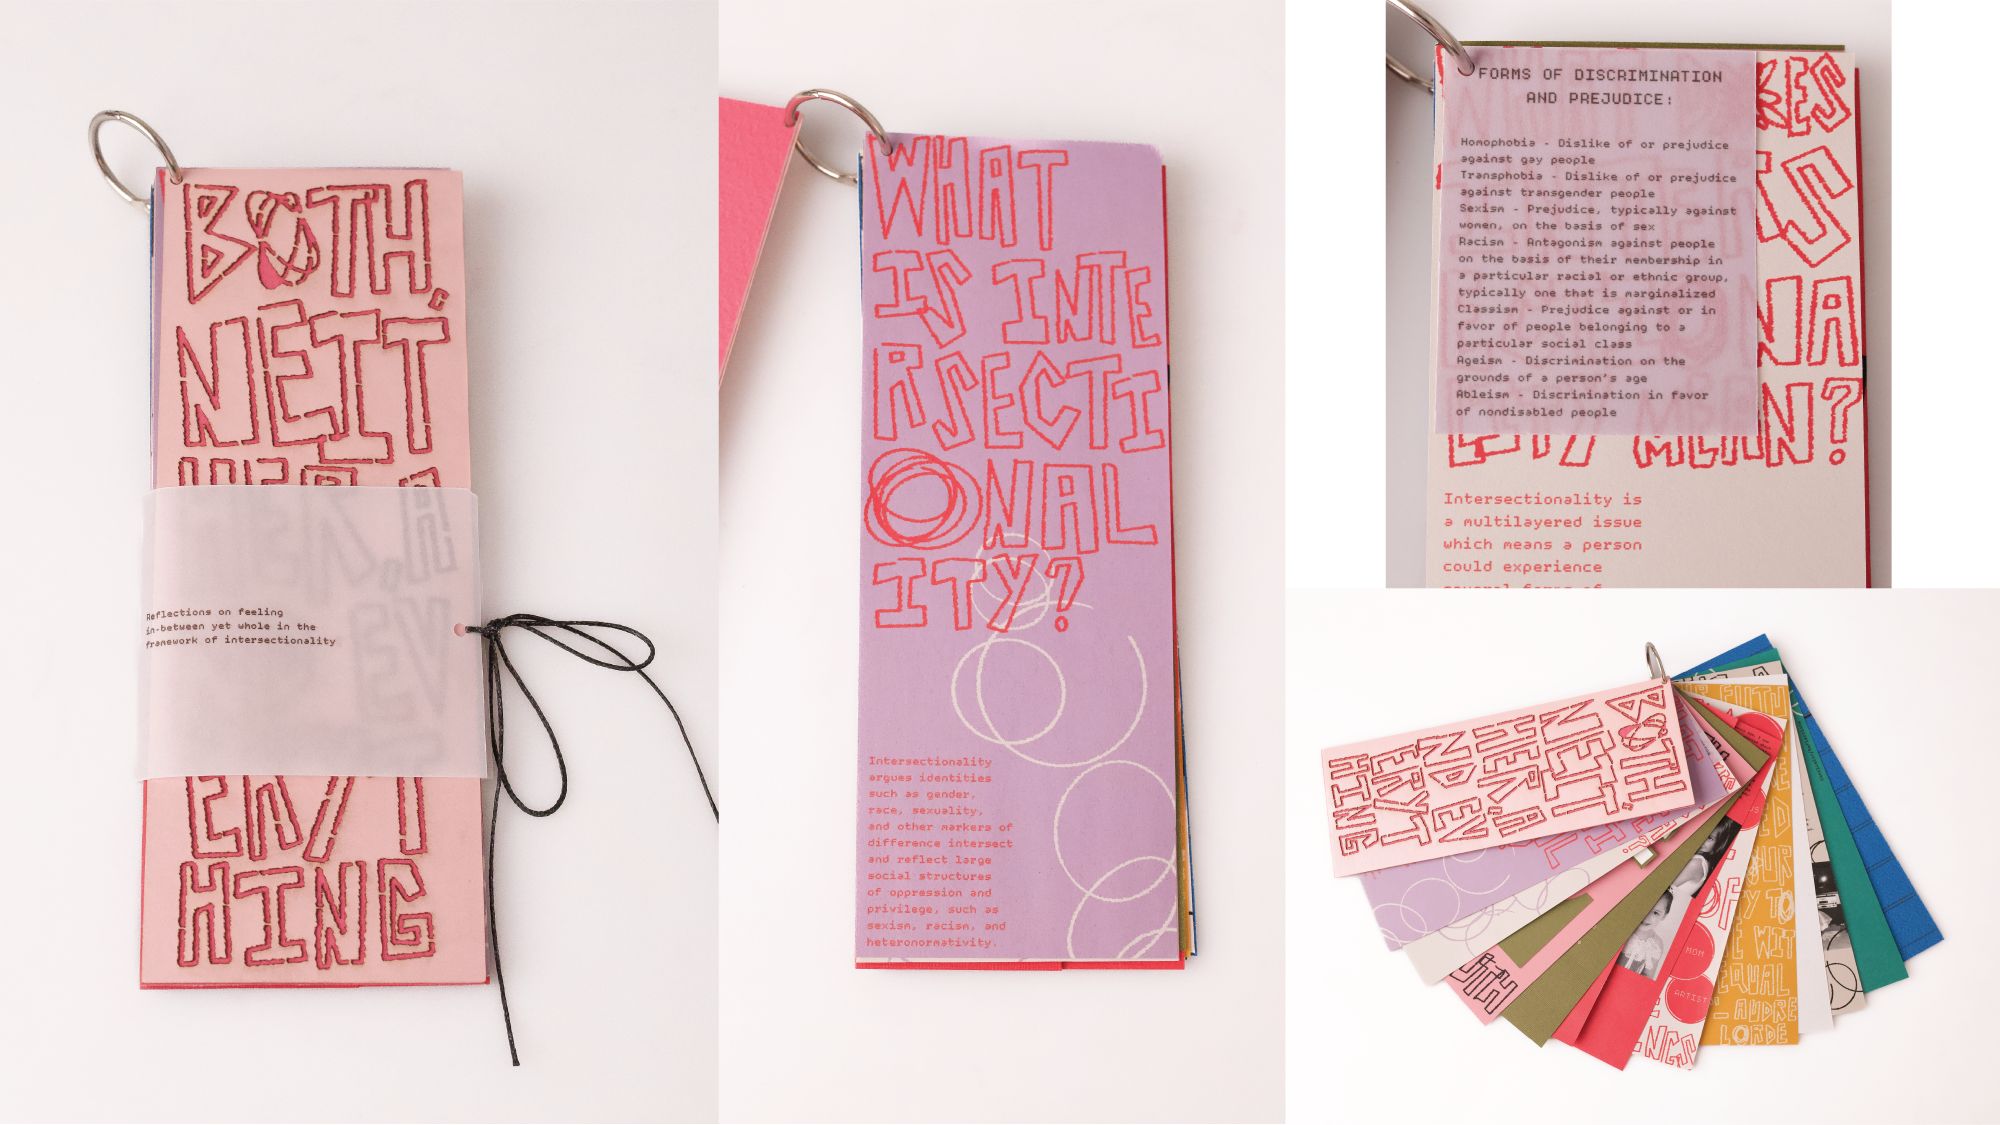 BOTH,
NEIT
HER, A
ERYT
HING
Reflections on feeling
in-between yet whole in the
framework of intersectionality
WHAT
IS INTE
RSECTI
ONAL
ITY?
Intersectionality
argues identities
such as gender,
race, sexuality,
and other markers of
difference intersect
and reflect large
social structures
of oppression and
privilege, such as
sexism, racism, and
heteronormativity.
FORMS OF DISCRIMINATION
AND PREJUDICE:
Homophobia - Dislike of or prejudice
against gay people
Transphobia - Dislike of or prejudice
against transgender people
Sexism - Prejudice, typically against
women, on the basis of sex
Racism - Antagonism against people
on the basis of their membership in
a particular racial or ethnic group,
typically one that is marginalized
Classism - Prejudice against or in
favor of people belonging to a
particular social class
Ageism - Discrimination on the
grounds of a person's age
Ableism - Discrimination in favor
of nondisabled people
MEAN?
Intersectionality is
a multilayered issue
which means a person
could experience
several forms of
BOTH,
NEIT
HER, A
ND EV
ERYT
HING
MOM
ARTIST
EQUAL
— AUDRE
LORDE